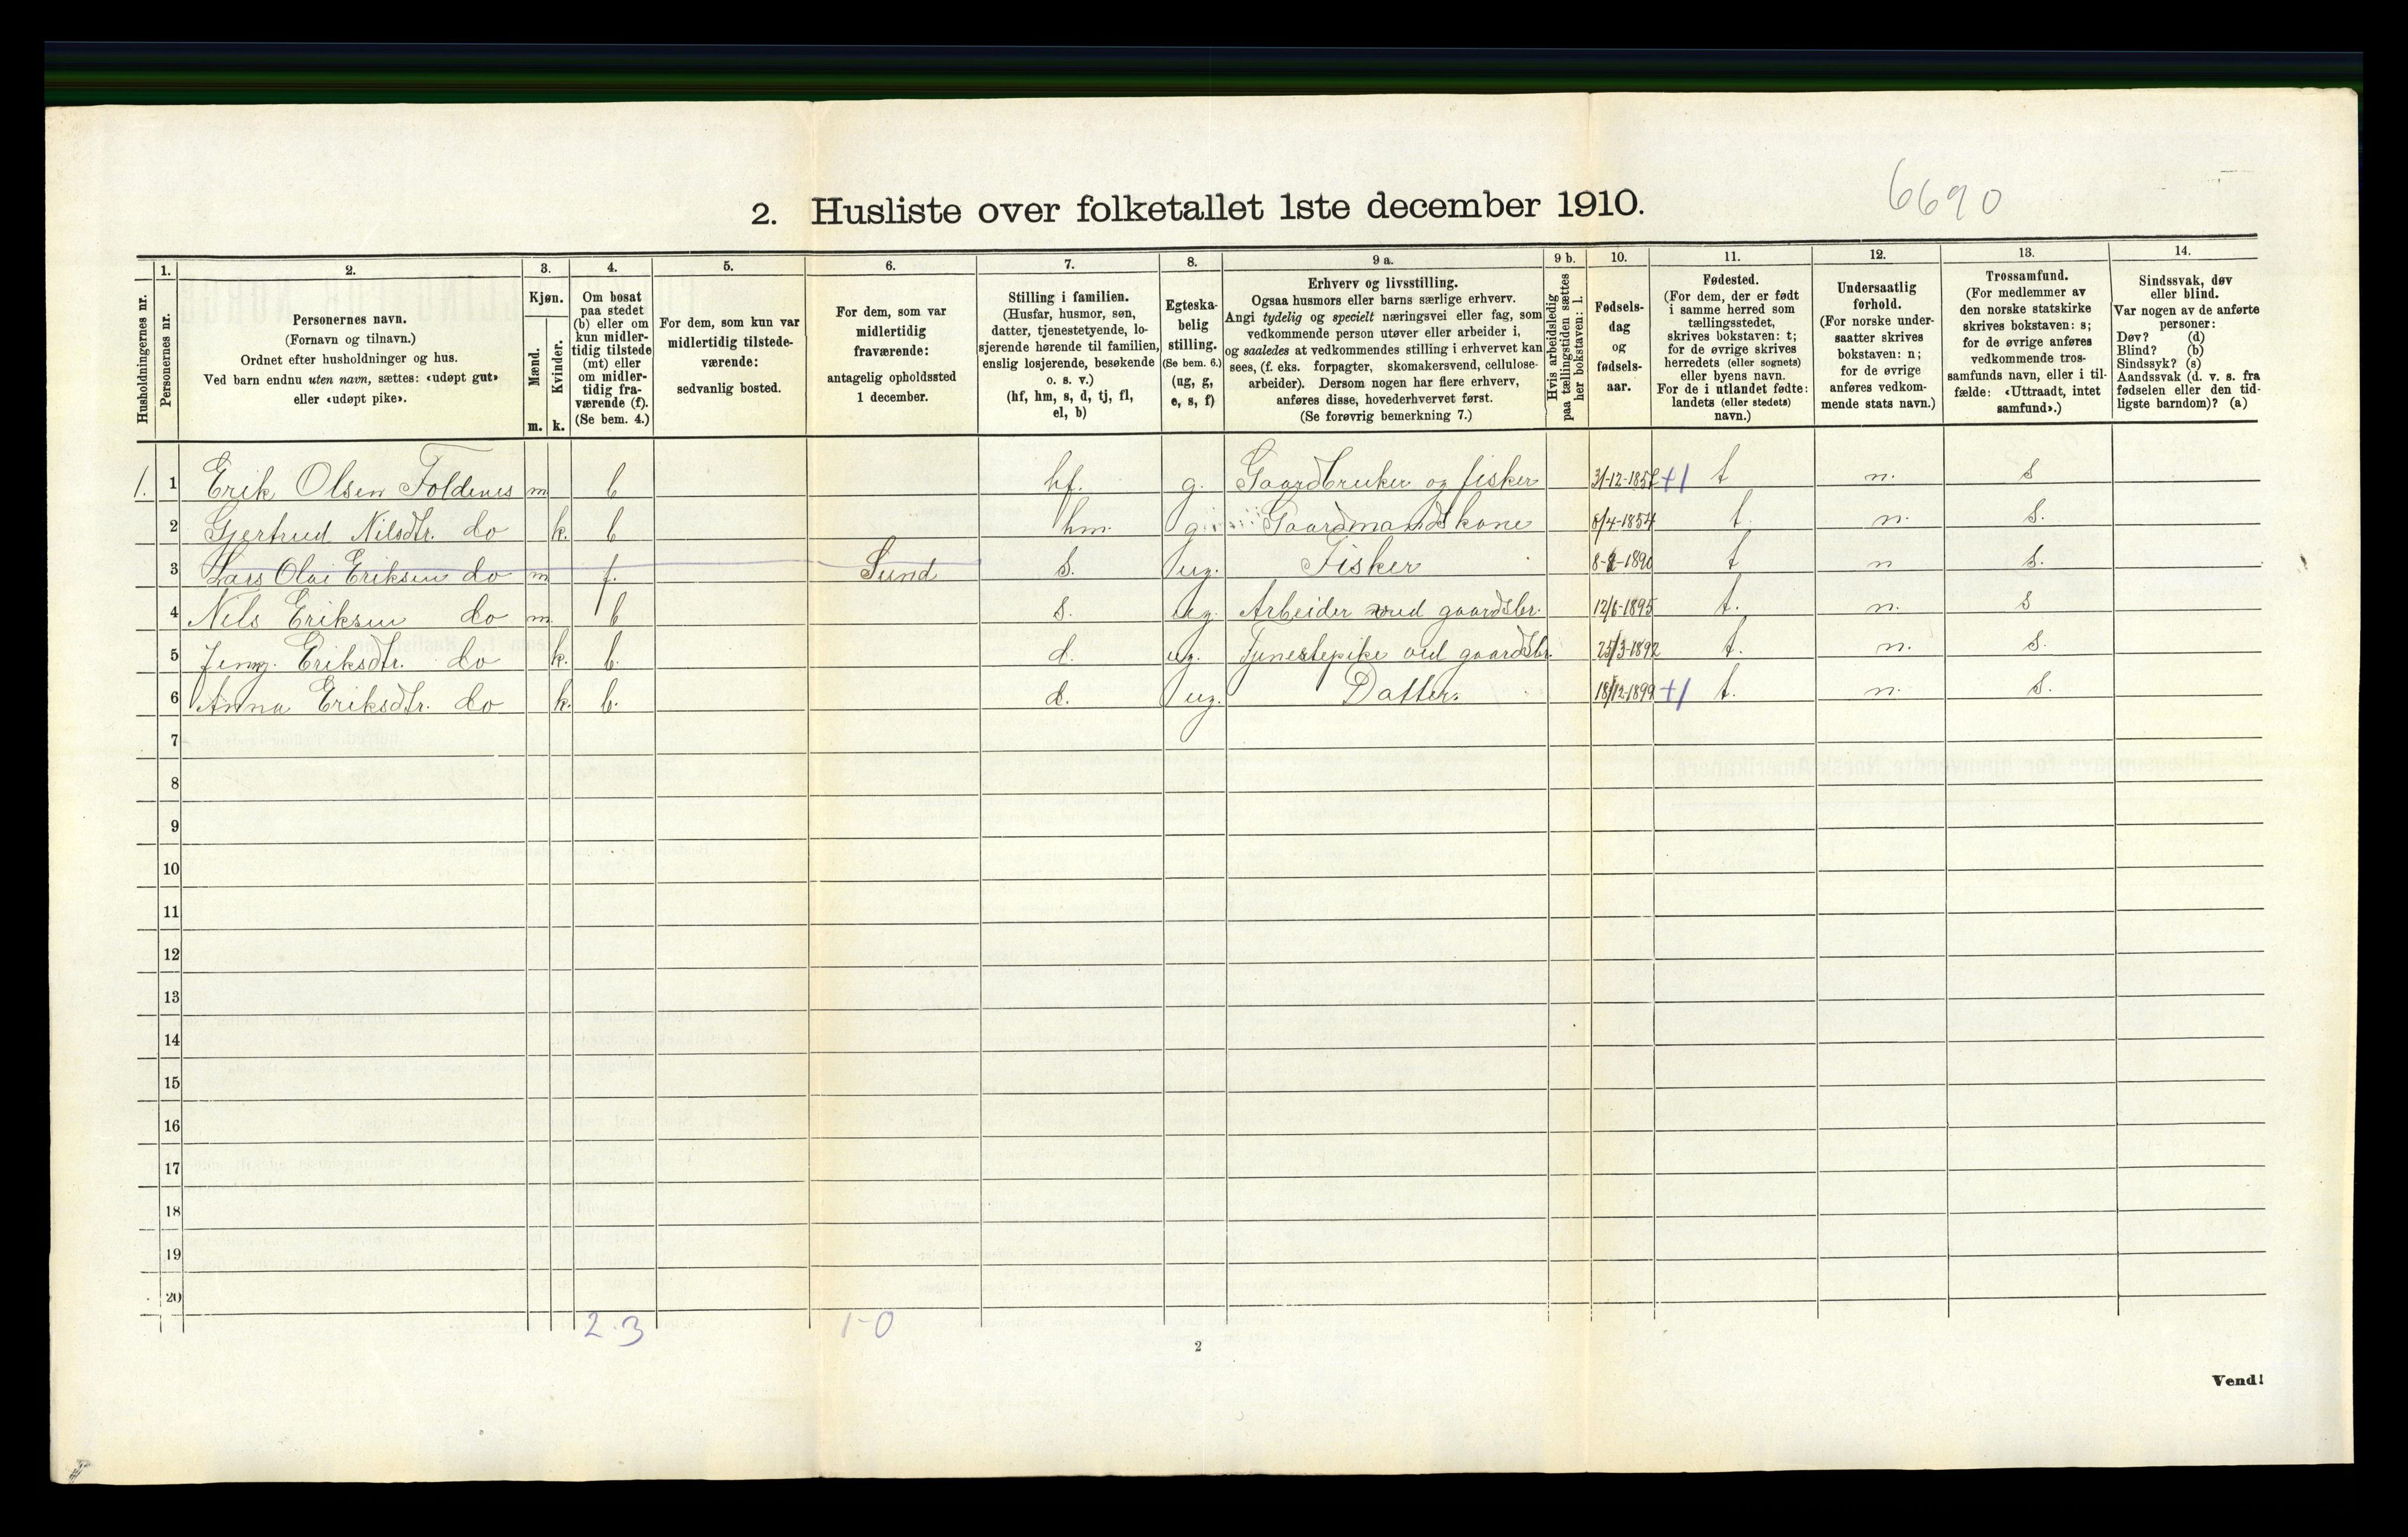 6690
2. Husliste over folketallet 1ste december 1910.
Husholdningernes nr.
1.
Personernes nr.
2.
Personernes navn.
(Fornavn og tilnavn.)
Ordnet efter husholdninger og hus.
Ved barn endnu uten navn, sættes: «udøpt gut»
eller «udøpt pike».
3.
Kjøn.
Mænd.
Kvinder.
m. k.
4.
Om bosat
paa stedet
(b) eller om
kun midler-
tidig tilstede
(mt) eller
om midler-
tidig fra-
værende (f).
(Se bem. 4.)
5.
For dem, som kun var
midlertidig tilstede-
værende:
sedvanlig bosted.
6.
For dem, som var
midlertidig
fraværende:
antagelig opholdssted
1 december.
7.
Stilling i familien.
(Husfar, husmor, søn,
datter, tjenestetyende, lo-
sjerende hørende til familien,
enslig losjerende, besøkende
o. s. v.)
(hf, hm, s, d, tj, fl,
el, b)
8.
Egteska-
belig
stilling.
(Se bem. 6.)
(ug, g,
e, s, f)
9 a.
Erhverv og livsstilling.
Ogsaa husmors eller barns særlige erhverv.
Angi tydelig og specielt næringsvei eller fag, som
vedkommende person utøver eller arbeider i,
og saaledes at vedkommendes stilling i erhvervet kan
sees, (f. eks. forpagter, skomakersvend, cellulose-
arbeider). Dersom nogen har flere erhverv,
anføres disse, hovederhvervet først.
(Se forøvrig bemerkning 7.)
9 b.
Hvis arbeidsledig
paa tællingstiden sættes
her bokstaven: l.
10.
Fødsels-
dag
og
fødsels-
aar.
11.
Fødested.
(For dem, der er født
i samme herred som
tællingsstedet,
skrives bokstaven: t;
for de øvrige skrives
herredets (eller sognets)
eller byens navn.
For de i utlandet fødte:
landets (eller stedets)
navn.)
12.
Undersaatlig
forhold.
(For norske under-
saatter skrives
bokstaven: n;
for de øvrige
anføres vedkom-
mende stats navn.)
13.
Trossamfund.
(For medlemmer av
den norske statskirke
skrives bokstaven: s;
for de øvrige anføres
vedkommende tros-
samfunds navn, eller i til-
fælde: «Uttraadt, intet
samfund».)
14.
Sindssvak, døv
eller blind.
Var nogen av de anførte
personer:
Døv? (d)
Blind? (b)
Sindssyk? (s)
Aandssvak (d. v. s. fra
fødselen eller den tid-
ligste barndom)? (a)
1. 1 Erik Olsen Foldenes m b hf. g. Gaardbruker og fisker 31-12-1857 +1 t n. s
2 Gjertrud Nilsdtr. do k. b hm. g. Gaardmandskone 6/4-1854 t. n. s.
3 Lars Olai Eriksen do m f. Sund s. ug. Fisker 1890 t n s.
4 Nils Eriksen do m. b s. ug. Arbeider ved gaardsbr. 12/6-1895 t. n. s
5 Jenny Eriksdtr. do k. b. d. ug. Tjenestepike ved gaardsbr. 25/3-1892 t. n. s.
6 Anna Eriksdtr. do k. b. d. ug. Datter. 18/12-1899 +1 t. n. s.
7
8
9
10
11
12
13
14
15
16
17
18
19
20
2 . 3 1-0
2
Vend!